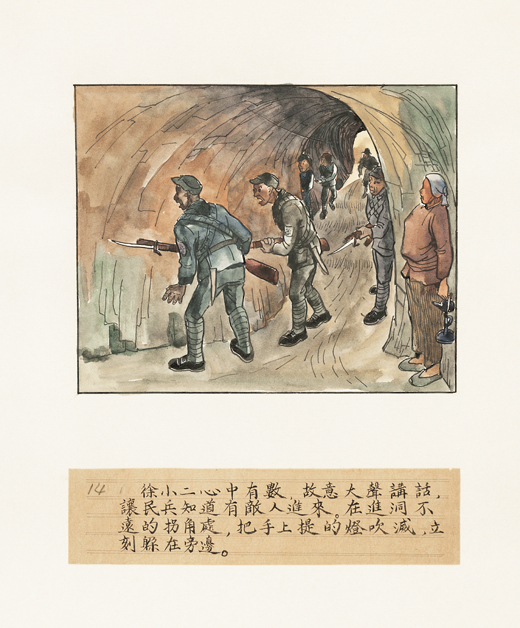 14 徐小二心中有數,故意大聲講話,
讓民兵知道有敵人進來。在進洞不
遠的拐角處,把手上提的燈吹滅,立
刻躲在旁邊。